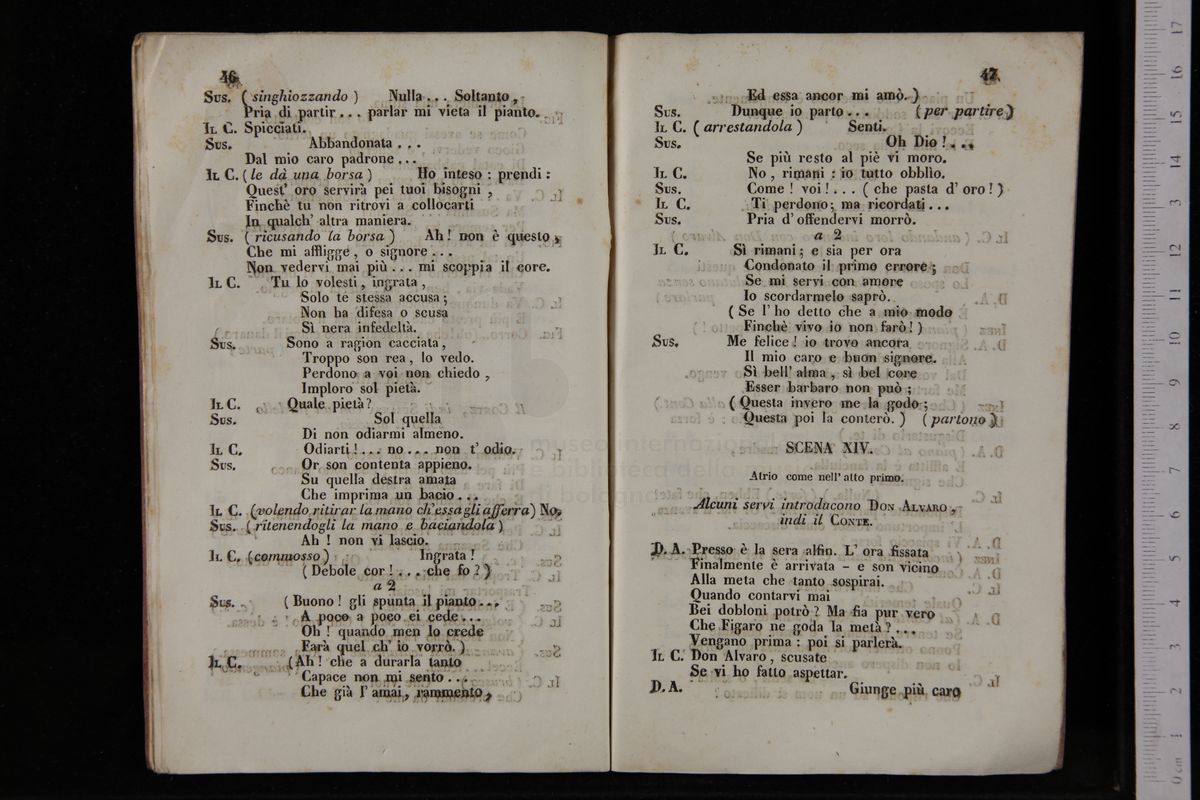 46
Sus. ( singhiozzando ) Nulla . . . Soltanto ,
Pria di partir . . . parlar mi vieta il pianto.
Il C. Spicciati.
Sus. Abbandonata . . .
Dal mio caro padrone . . .
Il C. ( le dà una borsa ) Ho inteso : prendi :
Quest' oro servirà pei tuoi bisogni ,
Finchè tu non ritrovi a collocarti
In qualch' altra maniera.
Sus. ( ricusando la borsa ) Ah ! non è questo ,
Che mi affligge , o signore . . .
Non vedervi mai più . . . mi scoppia il core.
Il C. Tu lo volesti , ingrata ,
Solo te stessa accusa ;
Non ha difesa o scusa
Sì nera infedeltà.
Sus. Sono a ragion cacciata ,
Troppo son rea , lo vedo.
Perdono a voi non chiedo ,
Imploro sol pietà.
Il C. Quale pietà ?
Sus. Sol quella
Di non odiarmi almeno.
Il C. Odiarti ! . . . no . . . non t' odio.
Sus. Or son contenta appieno.
Su quella destra amata
Che imprima un bacio . . .
Il C. (volendo ritirar la mano ch'essa gli afferra) No,
Sus. ( ritenendogli la mano e baciandola )
Ah ! non vi lascio.
Il C. (commosso ) Ingrata !
( Debole cor ! . . . che fo ? )
a 2
Sus. ( Buono ! gli spunta il pianto . . .
A poco a poco ei cede . . .
Oh ! quando men lo crede
Farà quel ch' io vorrò. )
Il C. (Ah ! che a durarla tanto
Capace non mi sento . . .
Che già l' amai , rammento ,
47
Ed essa ancor mi amò. )
Sus. Dunque io parto . . . ( per partire )
Il C. ( arrestandola ) Senti.
Sus. Oh Dio ! . . .
Se più resto al piè vi moro.
Il C. No , rimani : io tutto obblìo.
Sus. Come ! voi ! . . . ( che pasta d' oro ! )
Il C. Ti perdono ; ma ricordati . . .
Sus. Pria d' offendervi morrò.
a 2
Il C. Sì rimani ; e sia per ora
Condonato il primo errore ;
Se mi servi con amore
Io scordarmelo saprò.
( Se l' ho detto che a mio modo
Finchè vivo io non farò ! )
Sus. Me felice ! io trovo ancora
Il mio caro e buon signore.
Sì bell' alma , sì bel core
Esser barbaro non può ;
( Questa invero me la godo ;
Questa poi la conterò. ) ( partono )
SCENA XIV.
Atrio come nell' atto primo.
Alcuni servi introducono Don Alvaro ,
indi il Conte.
D. A. Presso è la sera alfin. L' ora fissata
Finalmente è arrivata - e son vicino
Alla meta che tanto sospirai.
Quando contarvi mai
Bei dobloni potrò ? Ma fia pur vero
Che Figaro ne goda la metà ? . . .
Vengano prima : poi si parlerà.
Il C. Don Alvaro , scusate
Se vi ho fatto aspettar.
D. A. Giunge più caro
museo internazionale
e biblioteca della musica
di bologna
0 cm 1 2 3 4 5 6 7 8 9 10 11 12 13 14 15 16 17